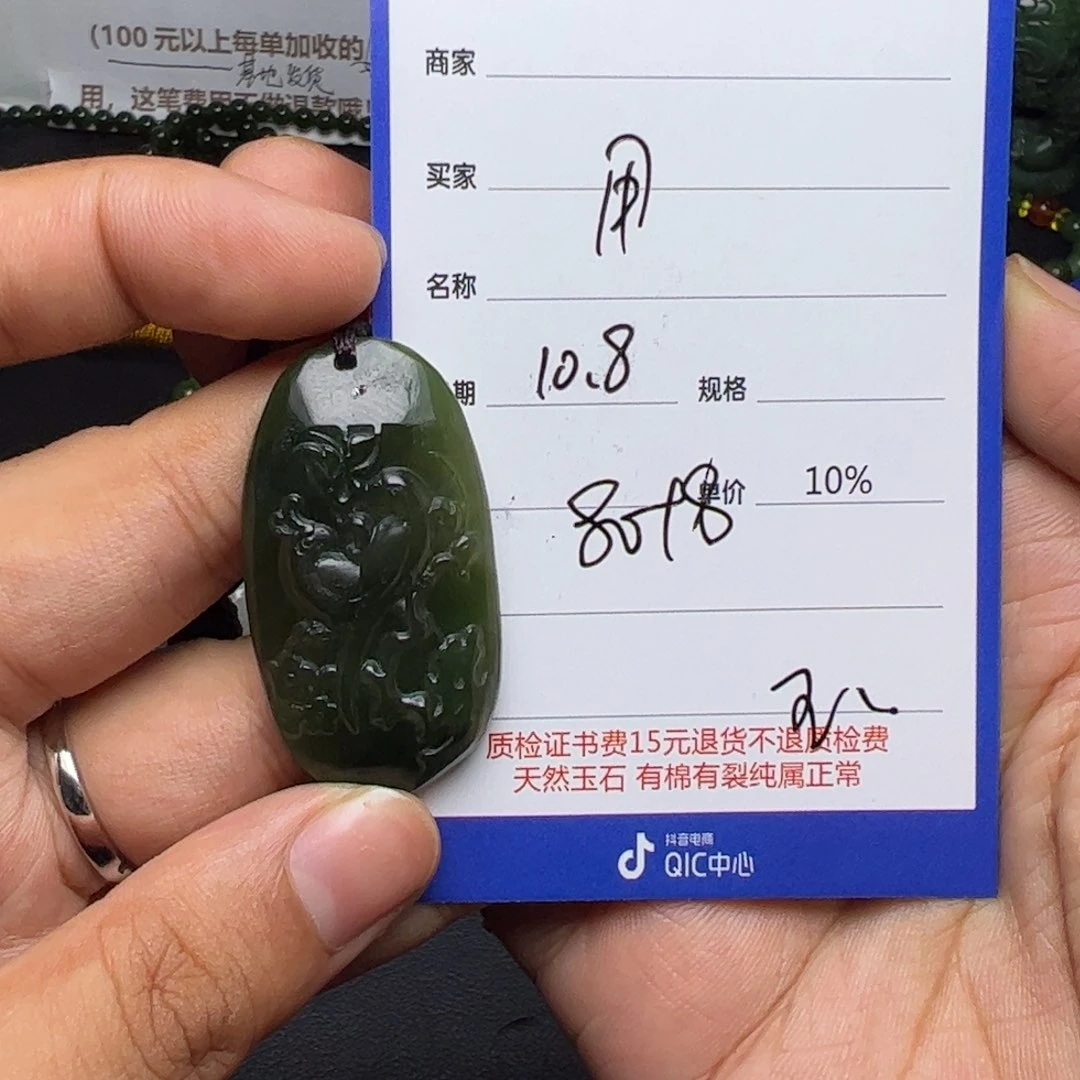 (100 元以上每单加收的
基地发货
用，这笔费用不做退款哦!
商家
买家 用
名称
期 10.8 规格
80+8 单价 10%
质检证书费15元退货不退质检费
天然玉石 有棉有裂纯属正常
抖音电商
QIC中心